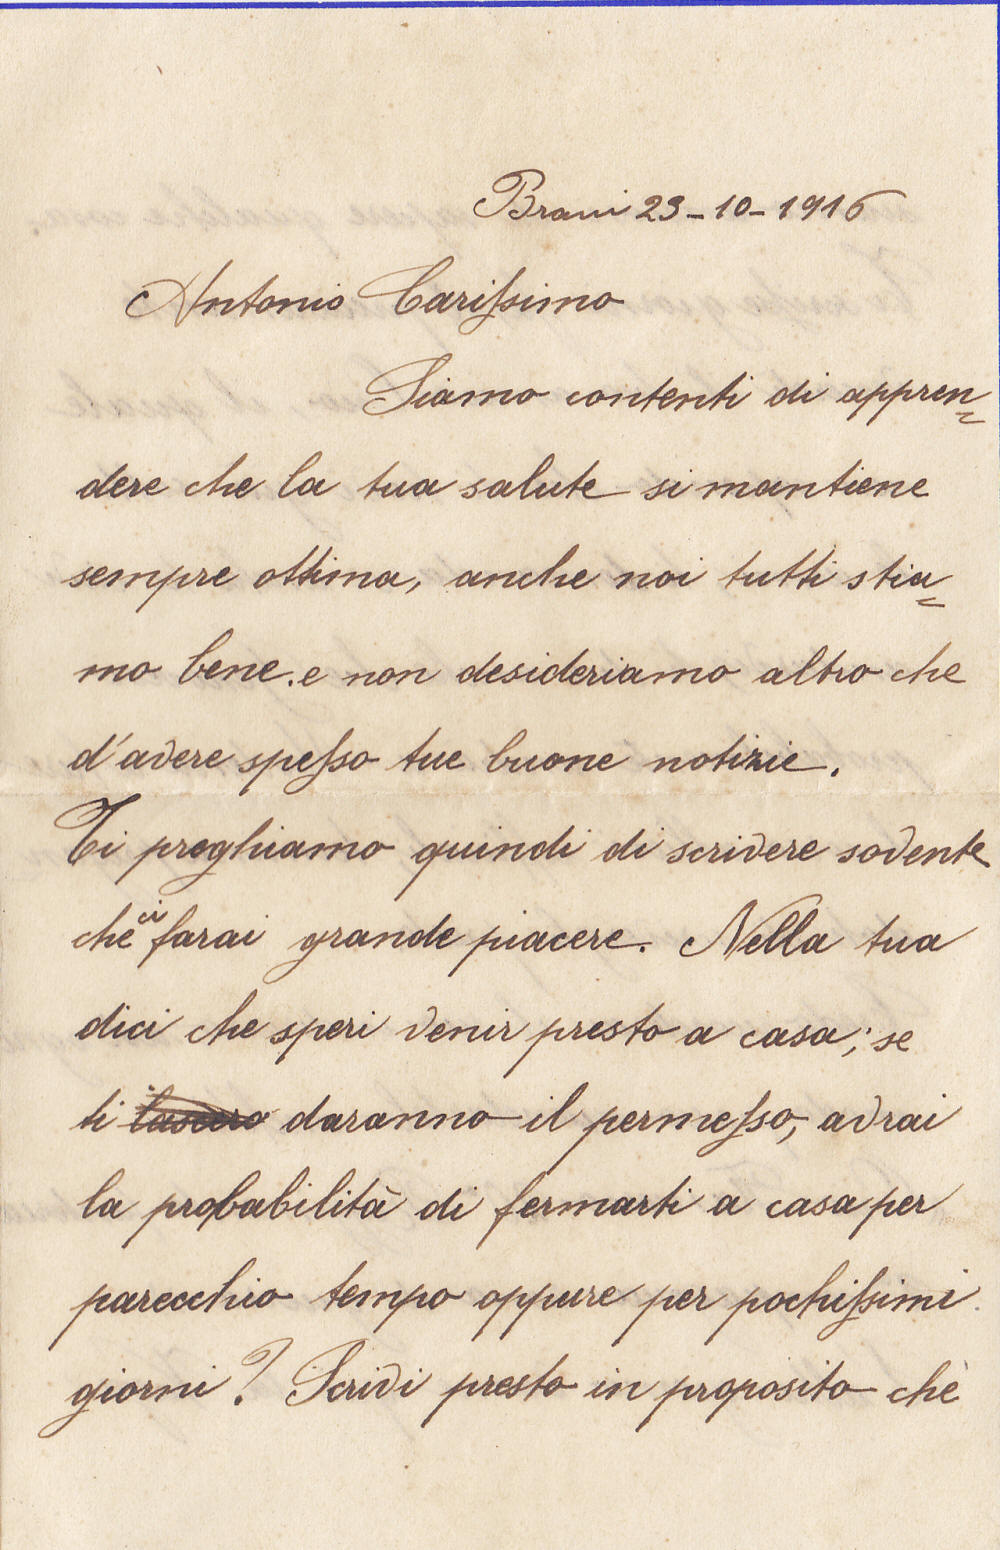 Bravi 23-10-1916
Antonio Carissimo
Siamo contenti di appren=
dere che la tua salute si mantiene
sempre ottima, anche noi tutti stia=
mo bene. e non desideriamo altro che
d'avere spesso tue buone notizie.
Ti preghiamo quindi di scrivere sovente
che ci farai grande piacere. Nella tua
dici che speri venir presto a casa; se
ti daranno il permesso, avrai
la probabilità di fermarti a casa per
parecchio tempo oppure per pochissimi
giorni? Scrivi presto in proposito chè